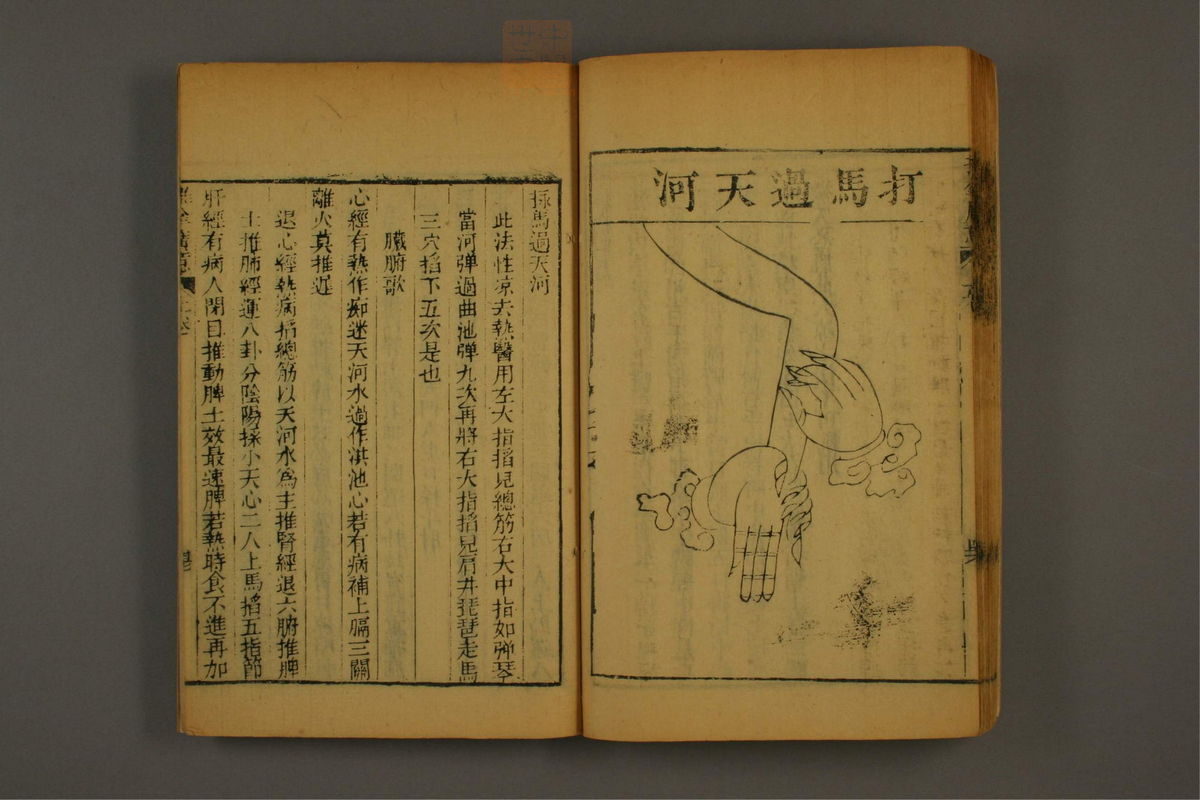 打馬過天河
揉馬過天河
此法性涼去熱醫用左大指掐兒總筋右大中指如弹琴
當河弹過曲池弹九次再將右大指掐兒肩井琵琶走馬
三穴掐下五次是也
臟腑歌
心經有熱作痴迷天河水過作洪池心若有病補上膈三關
離火莫推遲
退心經熱病掐總筋以天河水爲主推腎經退六腑推脾
土推肺經運八卦分陰陽揉小天心二人上馬掐五指節
肝經有病人閉目推動脾土效最速脾若熱時食不進再加